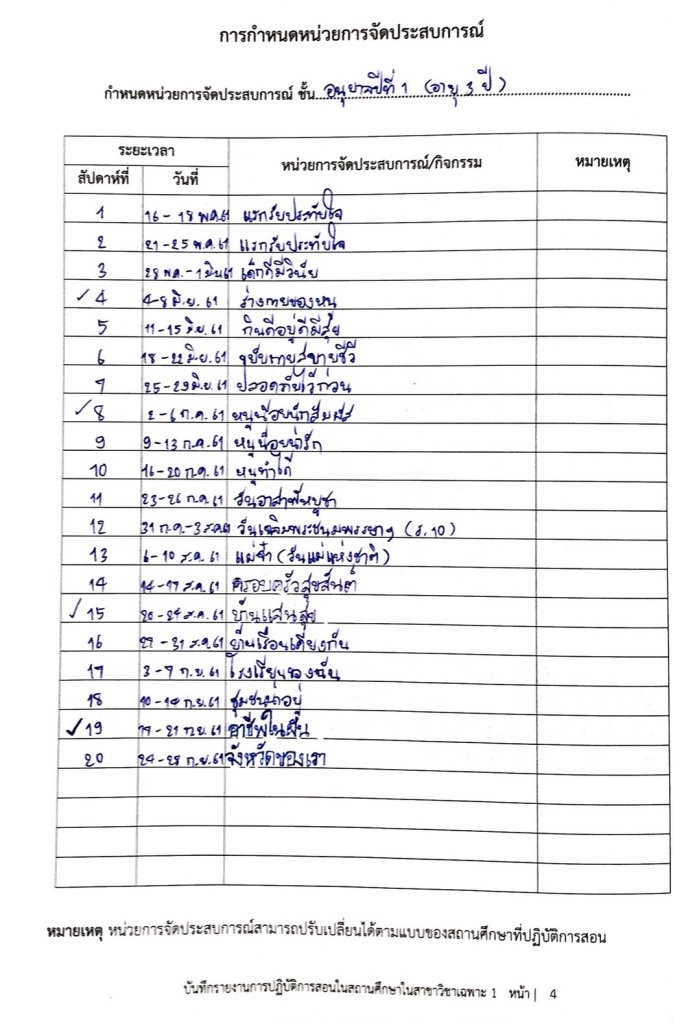 การกำหนดหน่วยการจัดประสบการณ์
กำหนดหน่วยการจัดประสบการณ์ ชั้น อนุบาลปีที่ 1 (อายุ 3 ปี)
ระยะเวลา หน่วยการจัดประสบการณ์/กิจกรรม หมายเหตุ
สัปดาห์ที่ วันที่
1 16-18 พ.ค. 61 แรกรับประทับใจ
2 21-25 พ.ค. 61 แรกรับประทับใจ
3 28 พ.ค. - 1 มิ.ย. 61 เด็กดีมีวินัย
✓ 4 4-8 มิ.ย. 61 ร่างกายของหนู
5 11-15 มิ.ย. 61 กินดีอยู่ดีมีสุข
6 18-22 มิ.ย. 61 ขยับกายสบายชีวี
7 25-29 มิ.ย. 61 ปลอดภัยไว้ก่อน
✓ 8 2-6 ก.ค. 61 หนูน้อยนักสัมผัส
9 9-13 ก.ค. 61 หนูน้อยน่ารัก
10 16-20 ก.ค. 61 หนูทำได้
11 23-26 ก.ค. 61 วันอาสาฬหบูชา
12 31 ก.ค.-3 ส.ค. 61 วันเฉลิมพระชนมพรรษาฯ (ร.10)
13 6-10 ส.ค. 61 แม่จ๋า (วันแม่แห่งชาติ)
14 14-17 ส.ค. 61 ครอบครัวสุขสันต์
✓ 15 20-24 ส.ค. 61 บ้านแสนสุข
16 27-31 ส.ค. 61 บ้านเรือนเคียงกัน
17 3-7 ก.ย. 61 โรงเรียนของฉัน
18 10-14 ก.ย. 61 ชุมชนน่าอยู่
✓ 19 17-21 ก.ย. 61 อาชีพในฝัน
20 24-28 ก.ย. 61 จังหวัดของเรา
หมายเหตุ หน่วยการจัดประสบการณ์สามารถปรับเปลี่ยนได้ตามแบบของสถานศึกษาที่ปฏิบัติการสอน
บันทึกรายงานการปฏิบัติการสอนในสถานศึกษาในสาขาวิชาเฉพาะ 1 หน้า | 4